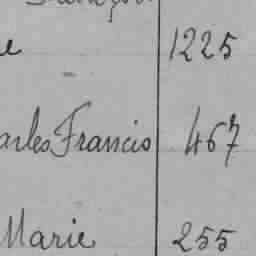 e 1225
arles Francis 467
Marie 255